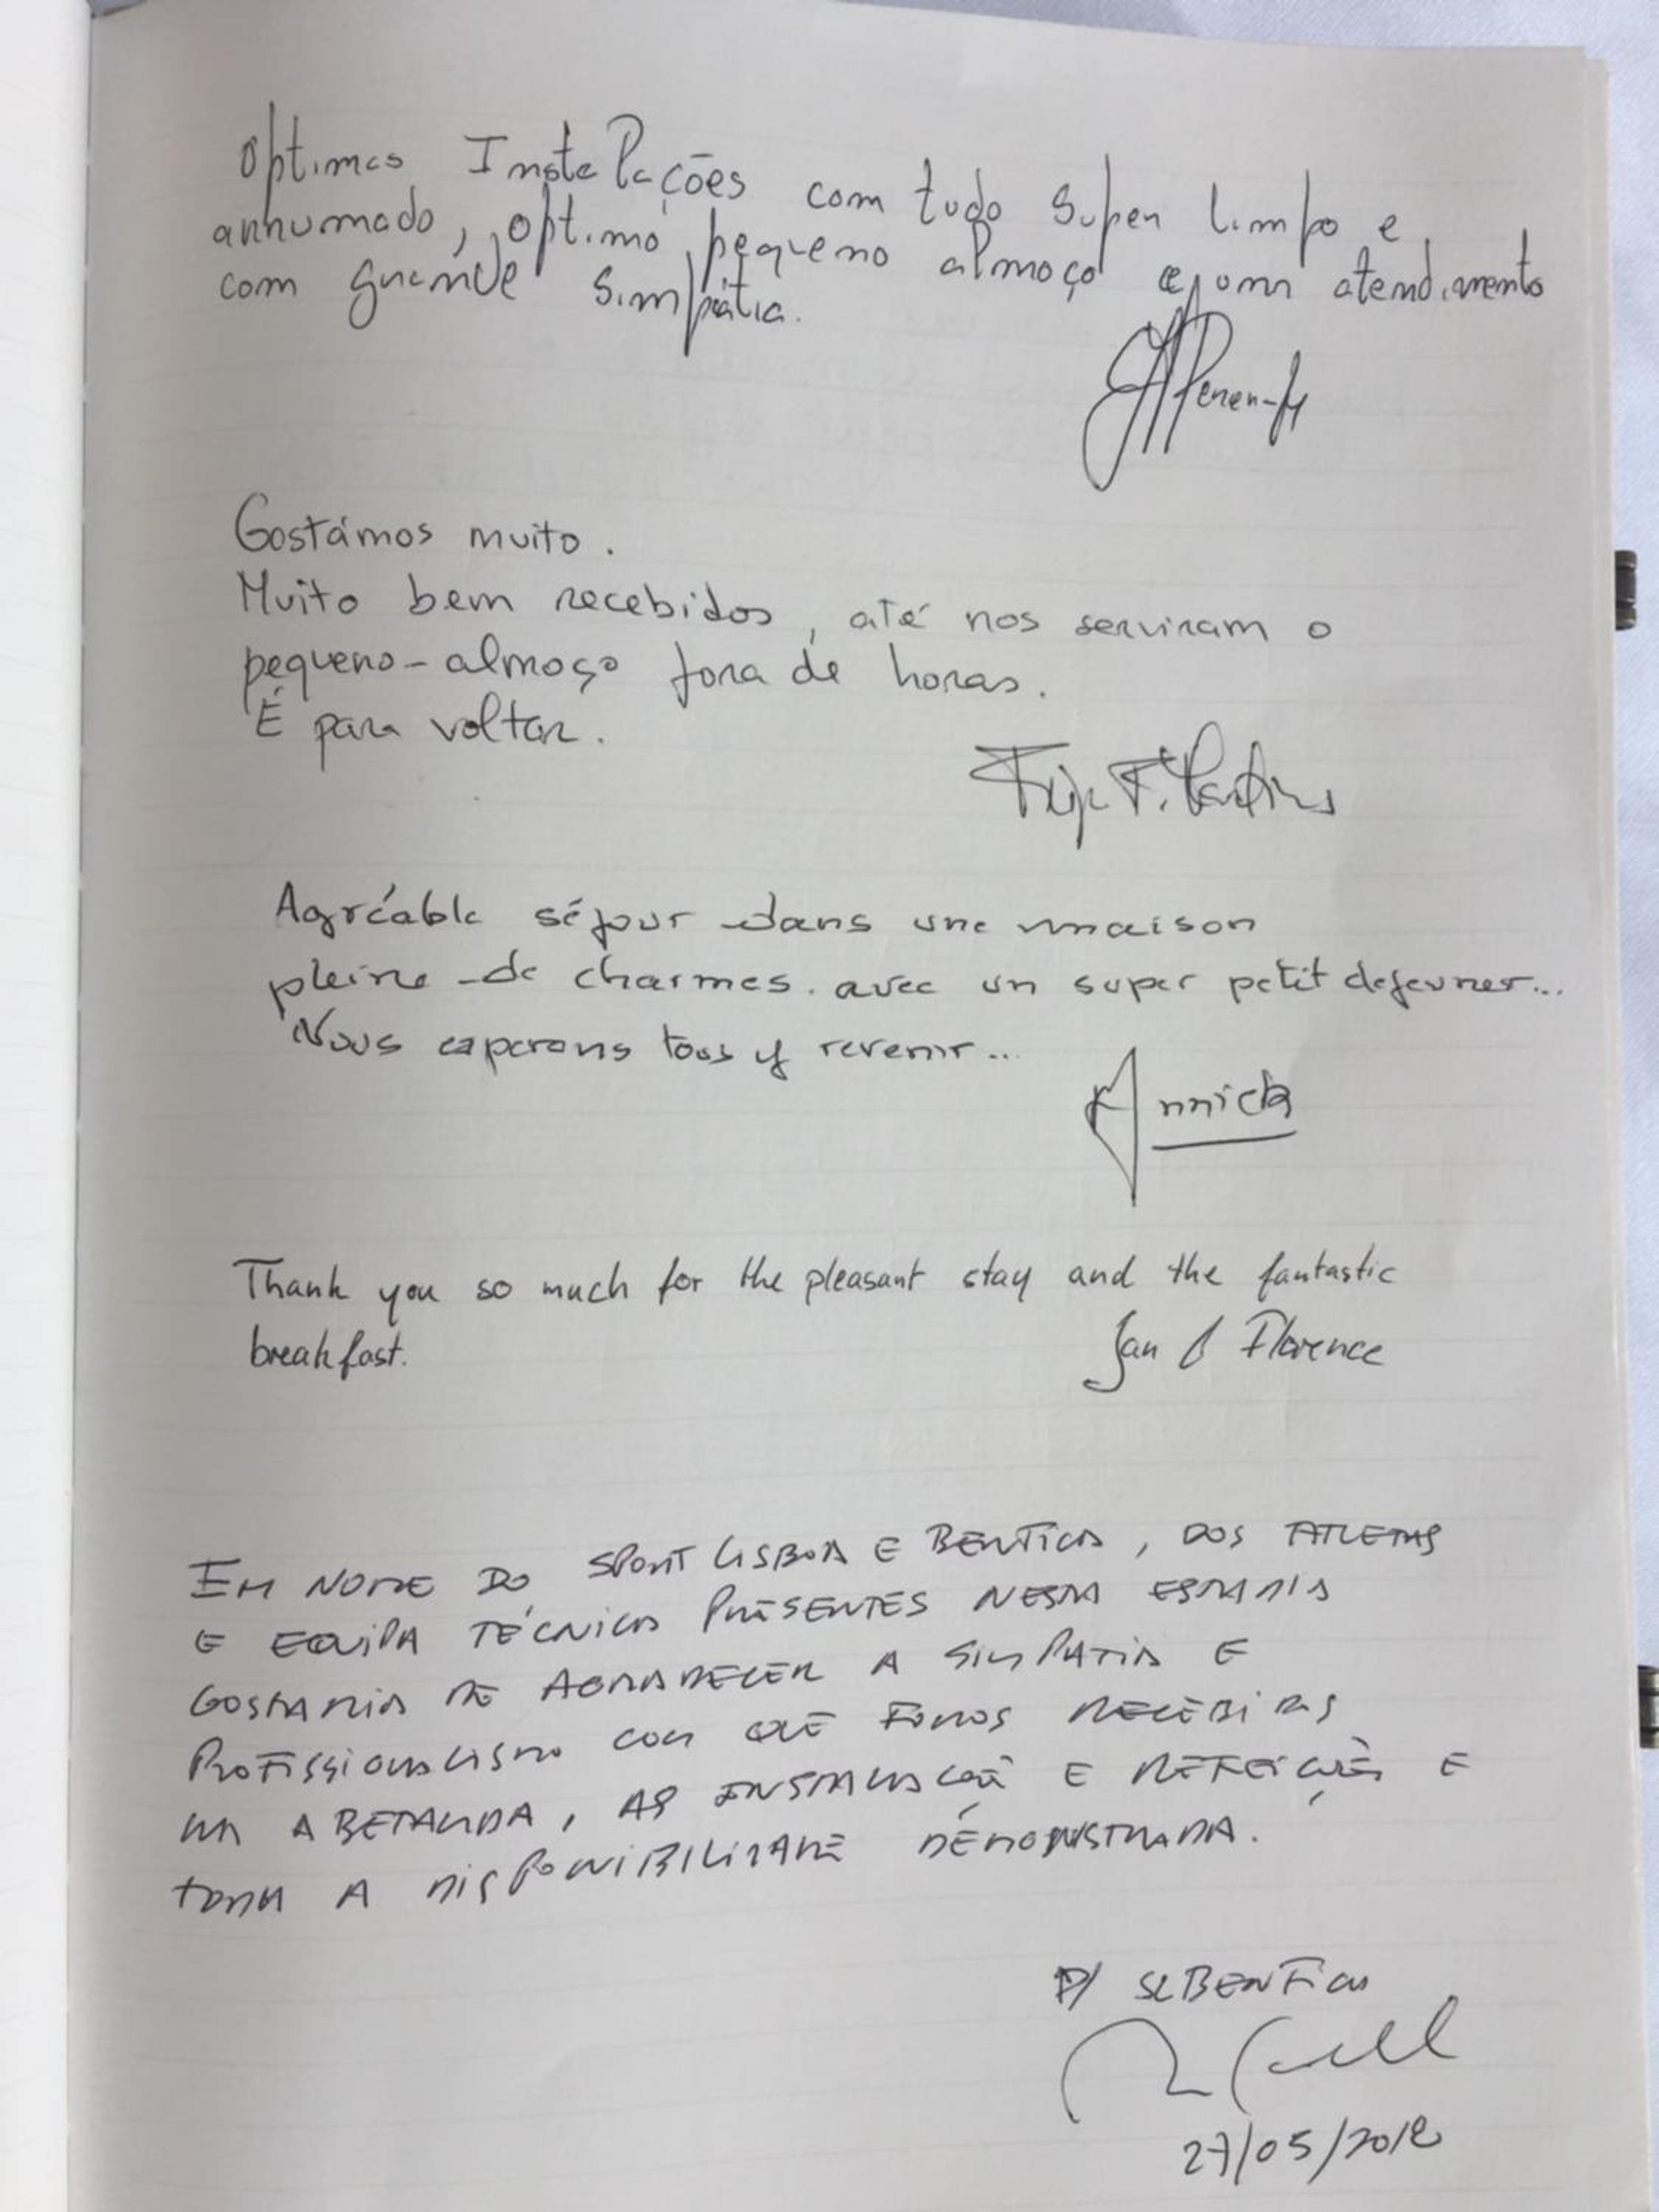 Optimas Instalações com tudo super limpo e
arrumado, optimo pequeno almoço e um atendimento
com grande simpátia.
Gostámos muito.
Muito bem recebidos, até nos serviram o
pequeno-almoço fora de horas.
É para voltar.
Agréable séjour dans une maison
pleine de charmes. avec un super petit dejeuner...
Nous esperons tous y revenir...
Annick
Thank you so much for the pleasant stay and the fantastic
breakfast.
Jan & Florence
EM NOME DO SPORT LISBOA E BENFICA, DOS ATLETAS
E EQUIPA TÉCNICA PRESENTES NESTA ESTADIA
GOSTARIA DE AGRADECER A SIMPATIA E
PROFISSIONALISMO COM QUE FOMOS RECEBIDOS
NA ABETARDA, AS E REFEIÇÕES E
TODA A DISPONIBILIDADE DEMONSTRADA.
P/ SLBENFICA
27/05/2018